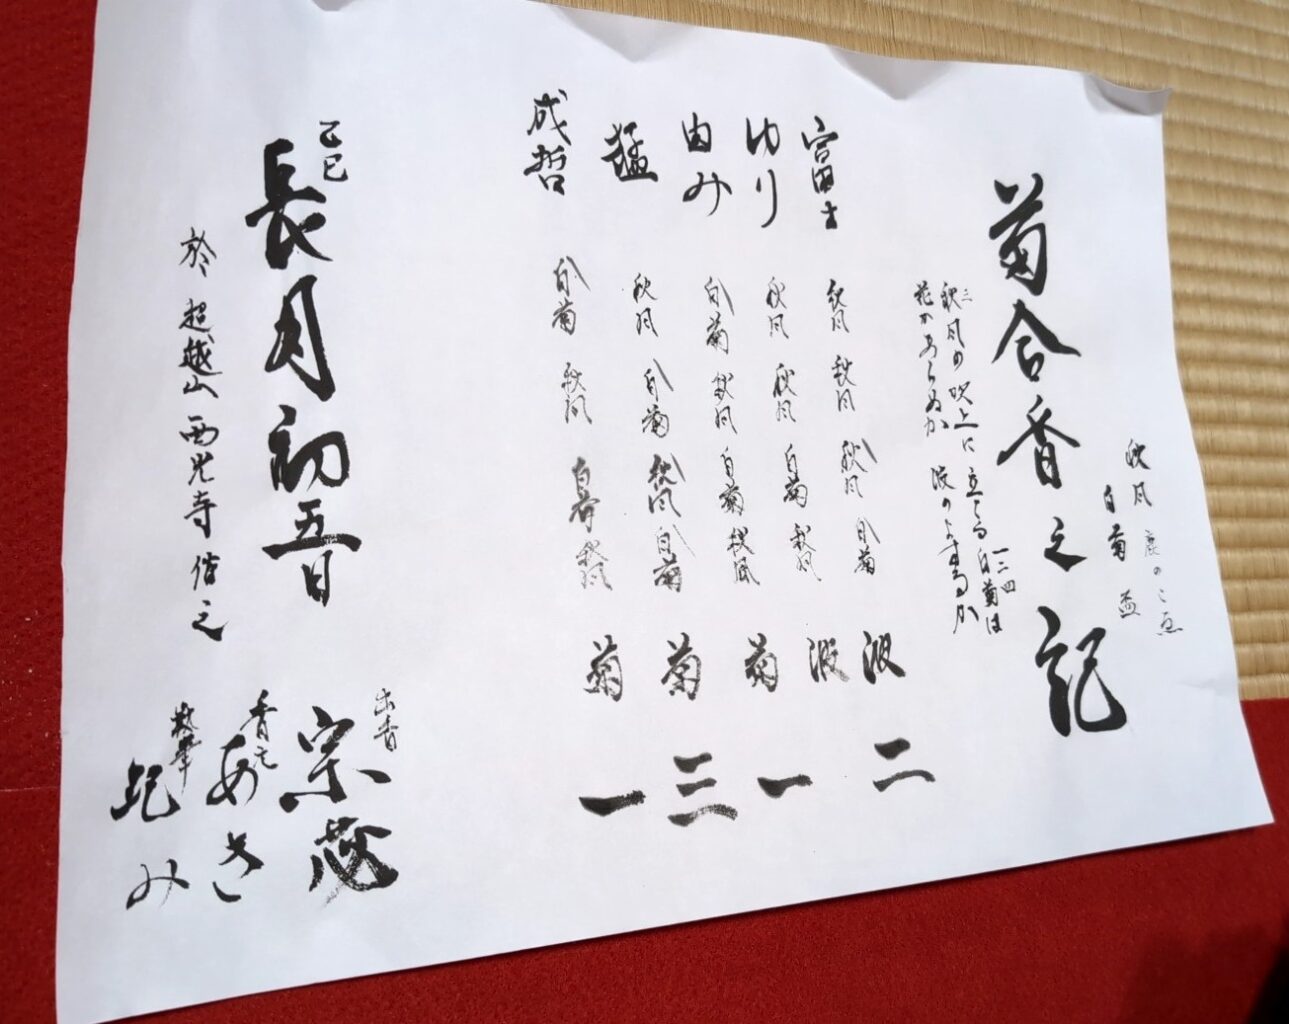 菊合香之記
秋風 鹿のこゑ
白菊 盃
三 一三四
秋風の吹上に立てる白菊は
花かあらぬか波のよするか
富田士 秋風 秋風 秋風 白菊 波 二
ゆり 秋風 秋風 白菊 秋風 波
由み 白菊 秋風 白菊 秋風 菊 一
猛 秋風 白菊 秋風 白菊 菊 三
成哲 白菊 秋風 白菊 秋風 菊 一
乙巳
長月初五日
於 超越山西光寺 偕之
出香 宗蕊
香元 あき
執筆 紀み